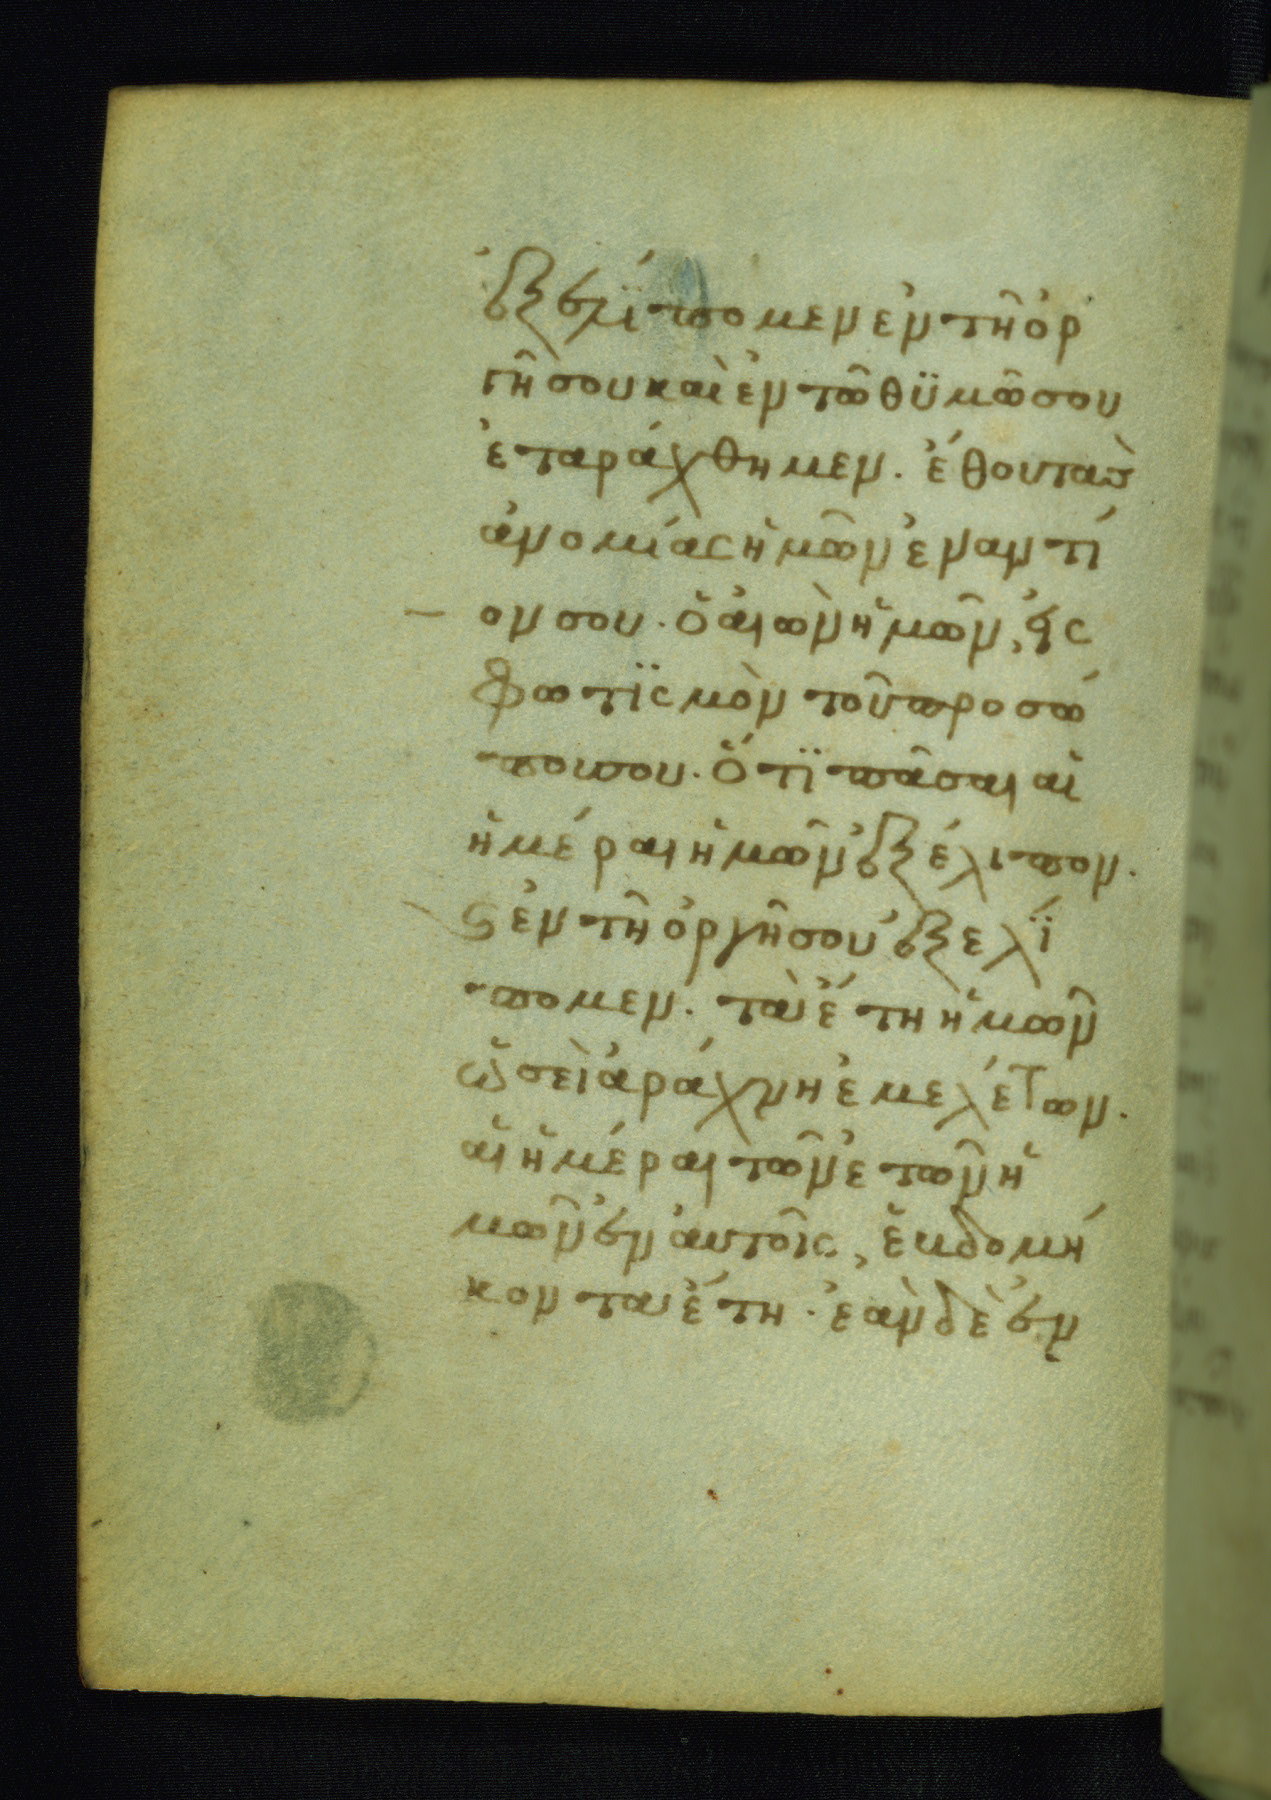 ἐξελίπομεν ἐν τῆ ὀρ
γῆ σου καὶ ἐν τῶ θϋμῶ σου
ἐταράχθημεν. ἔθου τὰς
ἀνομίας ἡμῶν ἐναντί
ον σου. ὁ αἰὼν ἡμῶν, εἰς
φωτϊσμὸν τοῦ προσώ
που σου. ὅτϊ πᾶσαι αἱ
ἡμέραι ἡμῶν ἐξέλιπον.
ϛ ἐν τῆ ὀργῆ σου ἐξελΐ
πομεν. τὰ ἔτη ἡμῶν
ὡσεὶ ἀράχνη ἐμελέτων.
αἱ ἡμέραι τῶν ἐτῶν ἡ
μῶν ἐν αὐτοῖς, ἑβδομή
κοντα ἔτη. ἐὰν δὲ ἐν